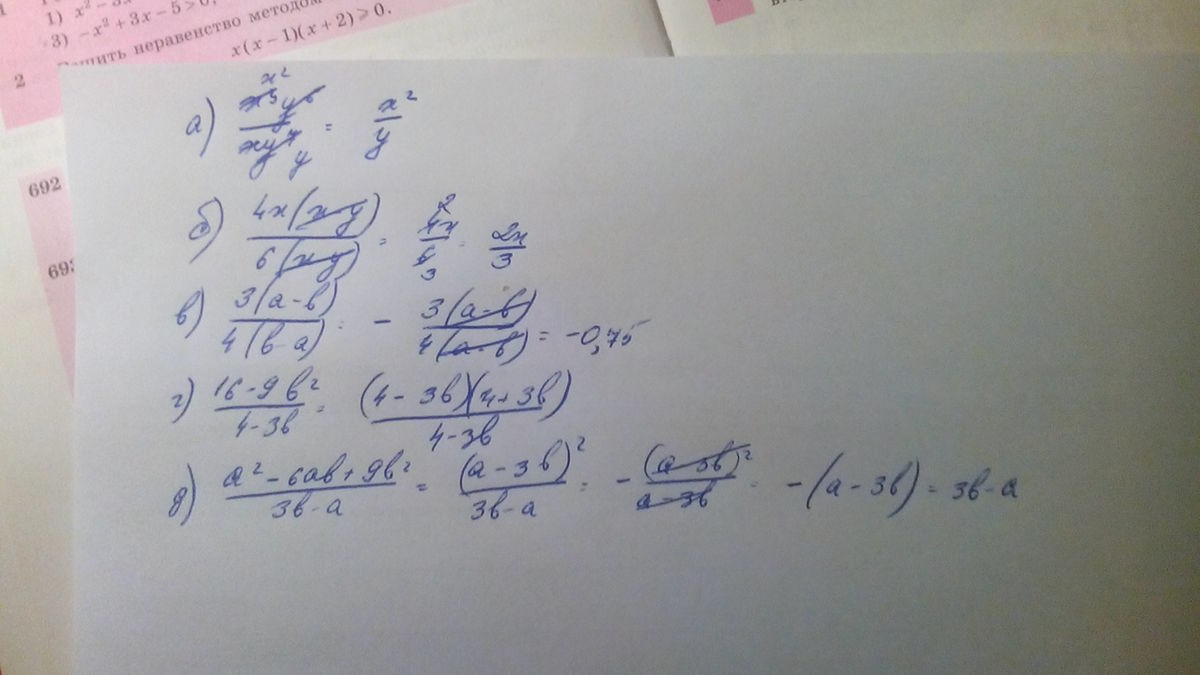 1) x² − 3x
3) −x² + 3x − 5 > 0;
2 неравенство методом
x(x − 1)(x + 2) ⩾ 0.
692
693
а) x³y⁶/xy⁷ = x²/y
б) 4x(x-y)/6(x-y) = 4x/6 = 2x/3
в) 3(a-b)/4(b-a) = - 3(a-b)/4(a-b) = -0,75
г) 16-9b²/4-3b = (4-3b)(4+3b)/4-3b
д) a²-6ab+9b²/3b-a = (a-3b)²/3b-a = -(a-3b)²/a-3b = -(a-3b) = 3b-a